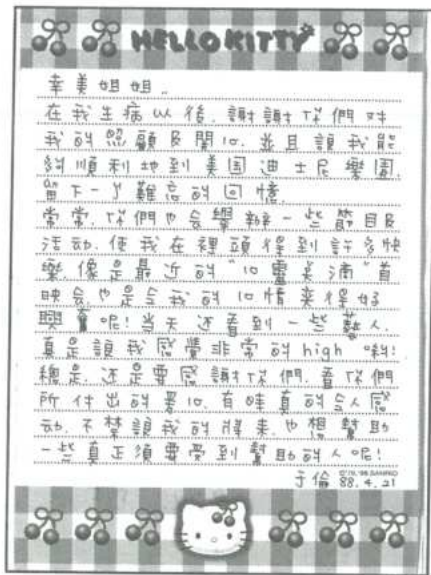 HELLO KITTY
幸美姐姐..
在我生病以後.謝謝你們对
我的照顧及開心.並且讓我能
夠順利地到美国迪士尼樂園.
留下一難忘的回憶.
常常.你們也会舉辦一些節目及
活动.使我在裡頭得到許多快
樂.像是最近的"心靈点滴"首
映会.也是令我的心情来得好
興奮呢!当天还看到一些藝人.
真是讓我感覺非常的high 喲!
總是.还是要感謝你們.看你們
所付出的愛心.有時真的令人感
动.不禁讓我的將来.也想幫助
一些真正須要受到幫助的人呢!
©'76,'98 SANRIO
于倫 88.4.21